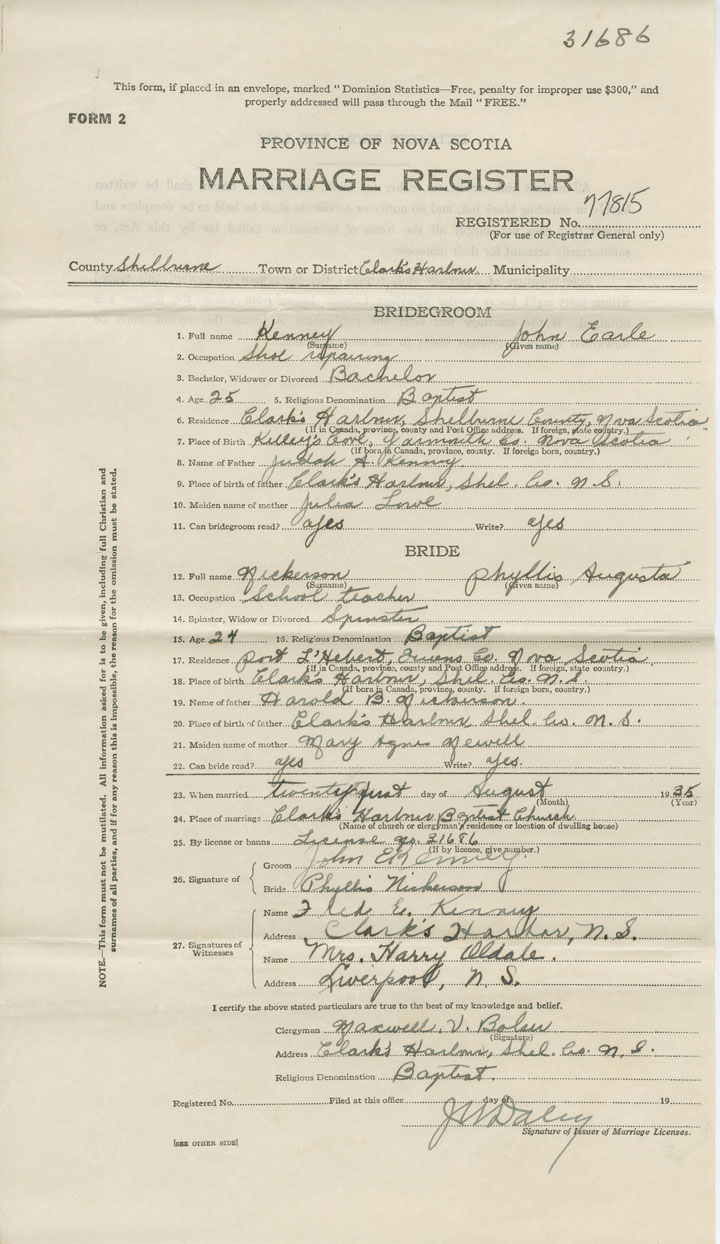 31686
This form, if placed in an envelope, marked "Dominion Statistics—Free, penalty for improper use $300," and
properly addressed will pass through the Mail "FREE."
FORM 2
PROVINCE OF NOVA SCOTIA
MARRIAGE REGISTER
REGISTERED No. 77815
(For use of Registrar General only)
County Shelburne Town or District Clark's Harbour Municipality
BRIDEGROOM
1. Full name Kenney John Earle
(Surname) (Given name)
2. Occupation Shoe repairing
3. Bachelor, Widower or Divorced Bachelor
4. Age 25 5. Religious Denomination Baptist
6. Residence Clark's Harbour, Shelburne County, Nova Scotia
(If in Canada, province, county and Post Office address. If foreign, state country.)
7. Place of Birth Kelley's Cove, Yarmouth Co. Nova Scotia
(If born in Canada, province, county. If foreign born, country.)
8. Name of Father Judah A. Kenney
9. Place of birth of father Clark's Harbour, Shel. Co. N.S.
10. Maiden name of mother Julia Lowe
11. Can bridegroom read? yes Write? yes
BRIDE
12. Full name Nickerson Phyllis Augusta
(Surname) (Given name)
13. Occupation School teacher
14. Spinster, Widow or Divorced Spinster
15. Age 24 16. Religious Denomination Baptist
17. Residence Port L'Hebert, Queens Co. Nova Scotia
(If in Canada, province, county and Post Office address. If foreign, state country.)
18. Place of birth Clark's Harbour, Shel. Co. N.S.
(If born in Canada, province, county. If foreign born, country.)
19. Name of father Harold B. Nickerson.
20. Place of birth of father Clark's Harbour Shel. Co. N.S.
21. Maiden name of mother Mary Agnes Newell
22. Can bride read? yes Write? yes.
23. When married twenty first day of August 1935
(Month) (Year)
24. Place of marriage Clark's Harbour Baptist Church
(Name of church or clergyman's residence or location of dwelling house)
25. By license or banns License no. 31686
(If by licence, give number.)
26. Signature of
Groom John E Kenney.
Bride Phyllis Nickerson
27. Signatures of Witnesses
Name Fred E. Kenney
Address Clark's Harbor, N.S.
Name Mrs. Harry Oldale.
Address Liverpool, N.S.
I certify the above stated particulars are true to the best of my knowledge and belief.
Clergyman Maxwell. V. Bolser
(Signature)
Address Clark's Harbour, Shel. Co. N.S.
Religious Denomination Baptist.
Registered No. Filed at this office day of 19
J W Daley
Signature of Issuer of Marriage Licenses.
[SEE OTHER SIDE]
NOTE.—This form must not be mutilated. All information asked for is to be given, including full Christian and
surnames of all parties, and if for any reason this is impossible, the reason for the omission must be stated.